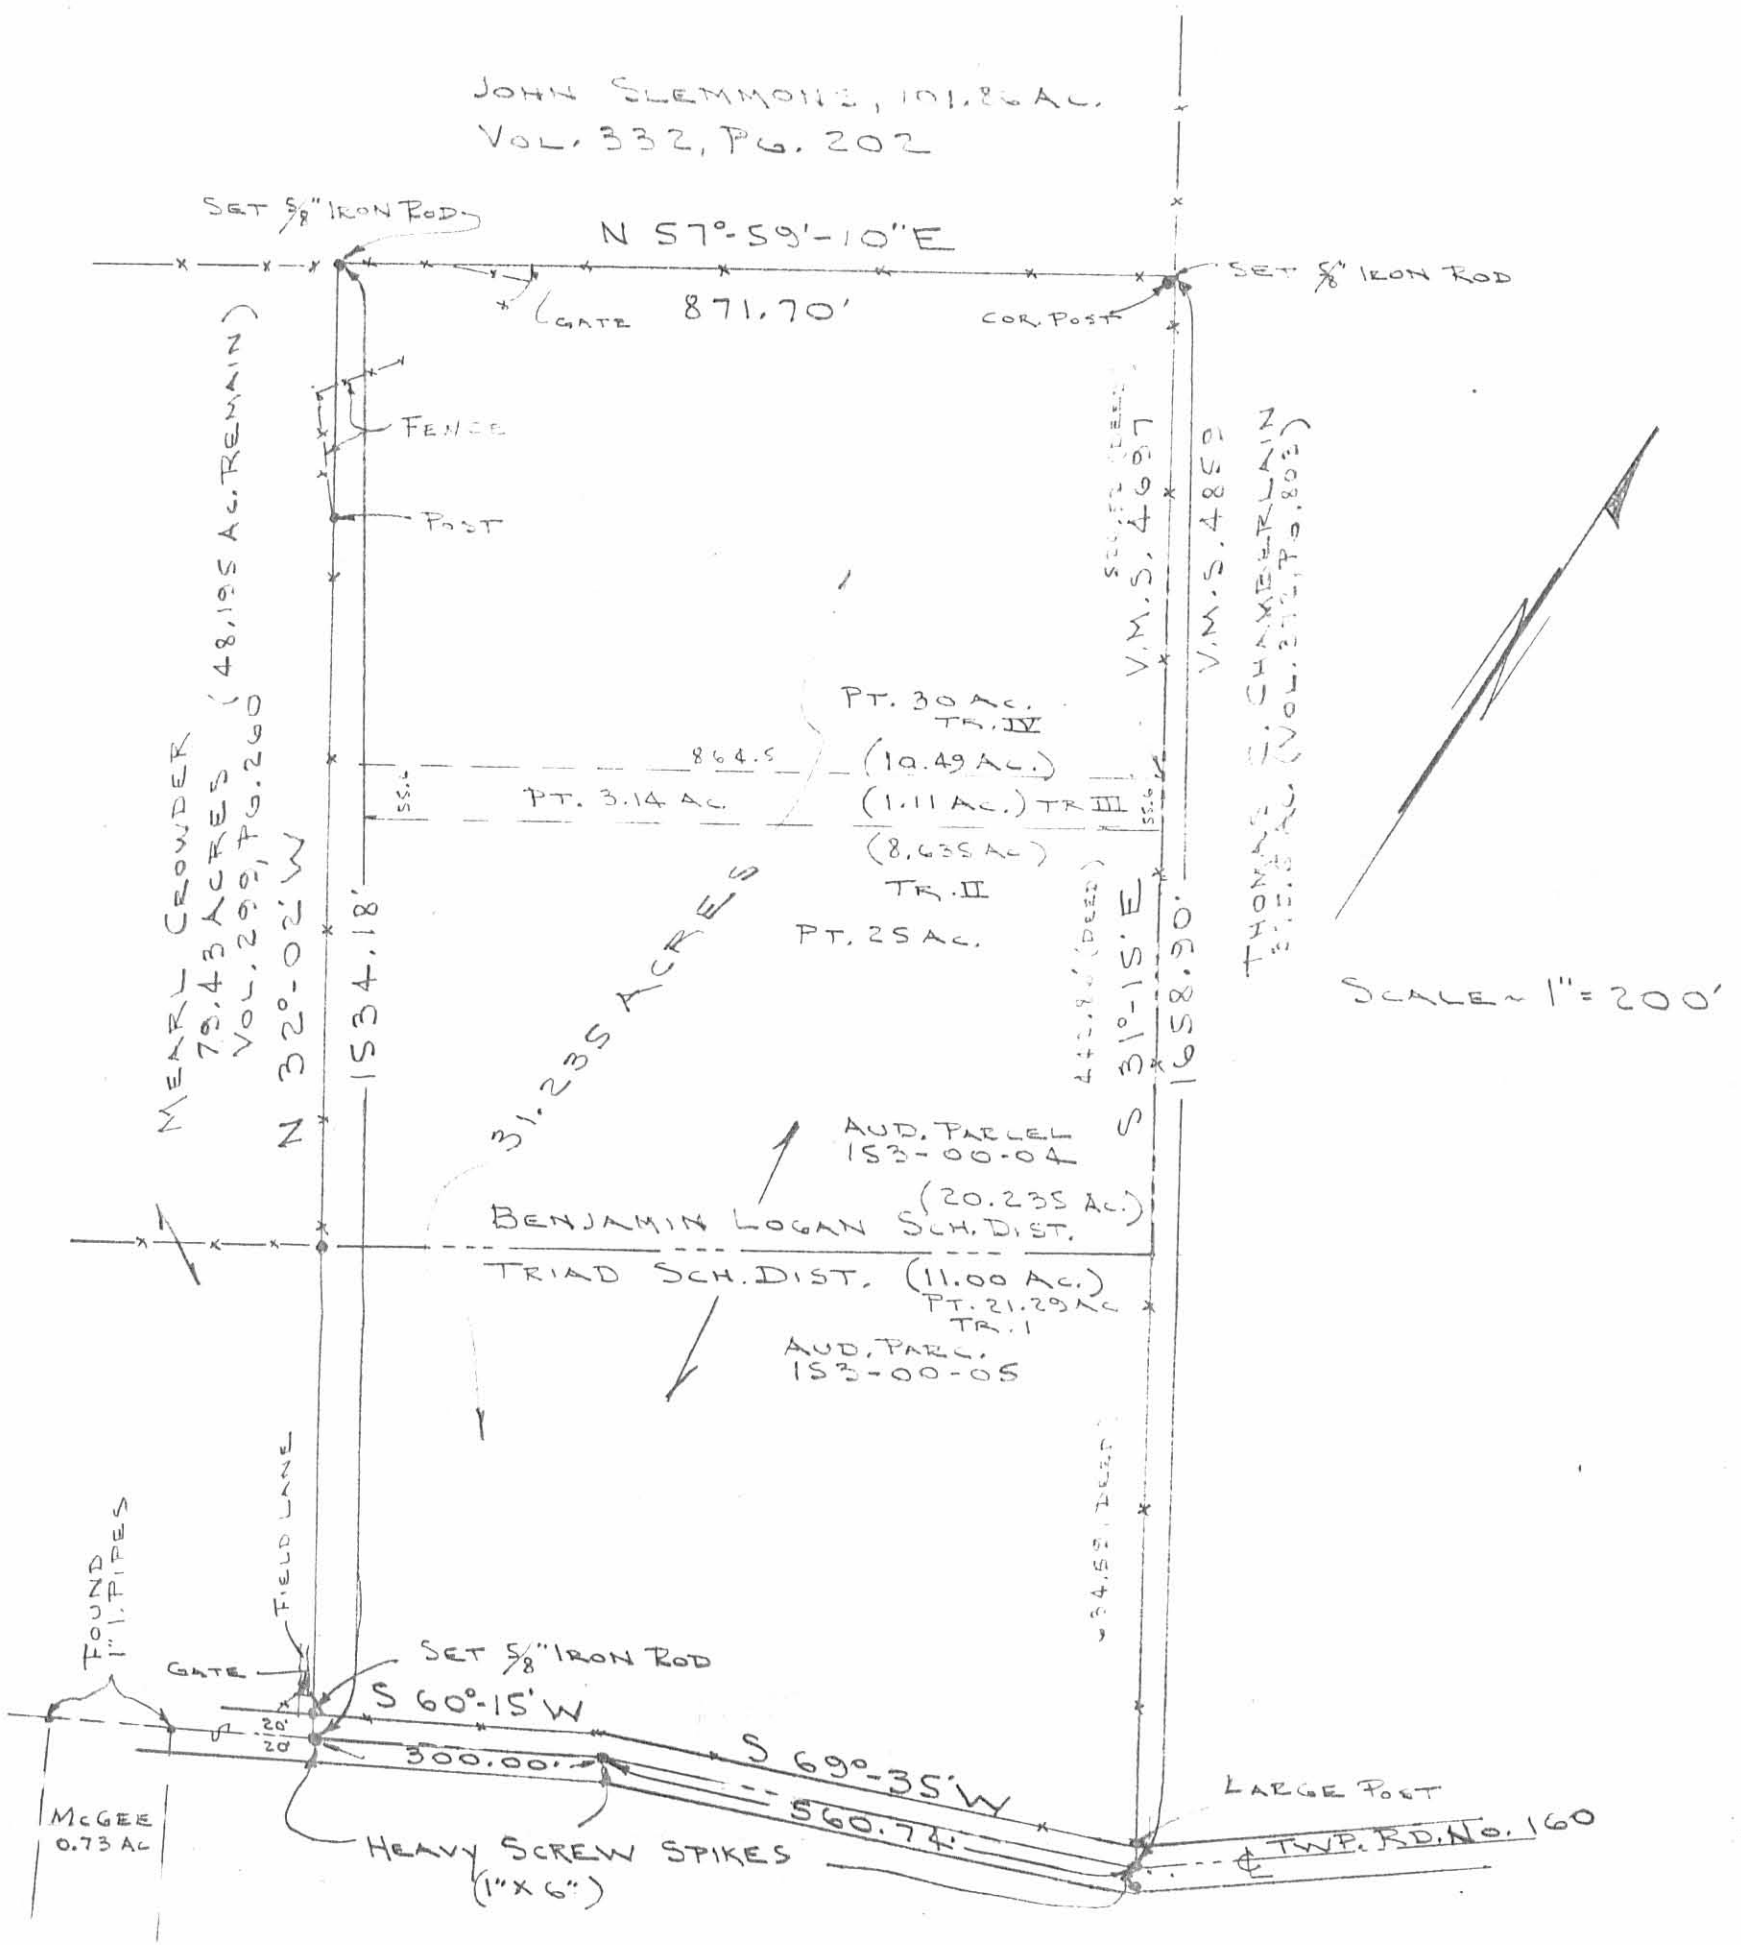 JOHN SLEMMONS, 101.86 AC.
VOL. 332, PG. 202
SET 5/8" IRON ROD
N 57°-59'-10" E
SET 5/8" IRON ROD
GATE
871.70'
COR. POST
FENCE
POST
MEARL CROWDER
79.43 ACRES (48.195 AC. REMAIN)
VOL. 299, PG. 260
N 32°-02' W
1534.18'
V.M.S. 4697
V.M.S. 4859
THOMAS CHAMBERLAIN
AC. (VOL. 272, PG. 803)
PT. 30 AC.
TR. IV
864.5
(10.49 AC.)
55.6
PT. 3.14 AC.
(1.11 AC.) TR III
55.6
(8.635 AC)
TR. II
PT. 25 AC.
(DEED)
S 31°-15' E
1658.90'
SCALE ~ 1" = 200'
31.235 ACRES
AUD. PARCEL
153-00-04
(20.235 AC.)
BENJAMIN LOGAN SCH. DIST.
TRIAD SCH. DIST. (11.00 AC.)
PT. 21.29 AC
TR. 1
AUD. PARC.
153-00-05
634.59 (DEED)
FIELD LANE
FOUND
1" I. PIPES
GATE
SET 5/8" IRON ROD
S 60°-15' W
20'
20'
300.00'
S 69°-35' W
560.74'
LARGE POST
TWP. RD. No. 160
McGEE
0.73 AC
HEAVY SCREW SPIKES
(1" X 6")